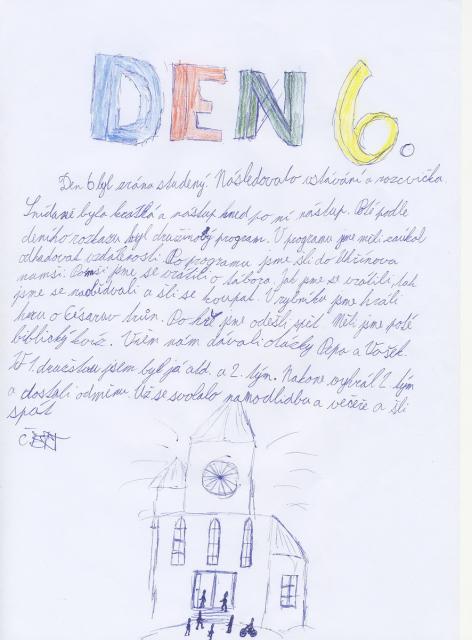 DEN 6.
Den 6 byl zrána studený. Následovalo vstávání a rozcvička.
Snídaně byla krátká a nástup hned po ní nástup. Poté podle
denního rozkazu byl družinový program. V programu jsme měli za úkol
odhadovat vzdálenosti. Po programu jsme šli do
na mši. Po mši jsme se vrátili do tábora. Jak jsme se vrátili tak
jsme se naobědvali a šli se koupat. V rybníku jsme hráli
hru o Césarův trůn. Po hře jsme odešli zpět. Měli jsme poté
biblický kvíz. Všem nám dávali otázky Pepa a Vašek.
V 1. družstvu jsem byl já atd. a 2. tým. Nakonec vyhrál 2. tým
a dostali odměnu. Už se svolalo na modlidbu a večeře a šli
spát